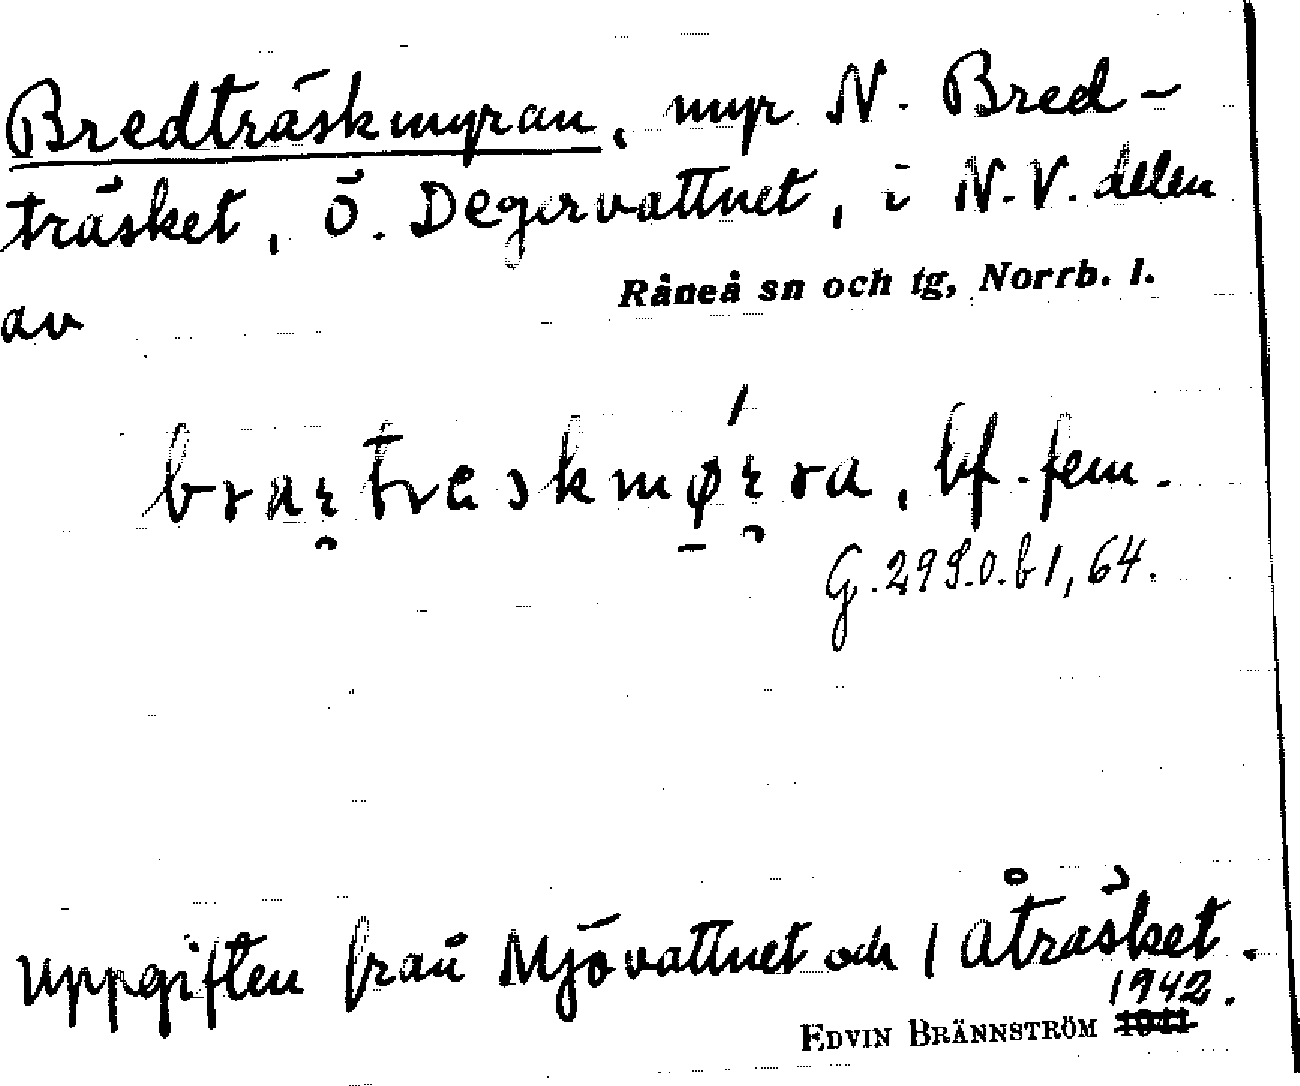 Bredträskmyran, myr N. Bred-
träsket, ö. Degervattnet, i N.V. delen
av Råneå sn och tg, Norrb. l.
bf. fem.
G. 299.0.b 1, 64.
Uppgiften från Mjövattnet och 1 Åträsket.
1942.
EDVIN BRÄNNSTRÖM 1941